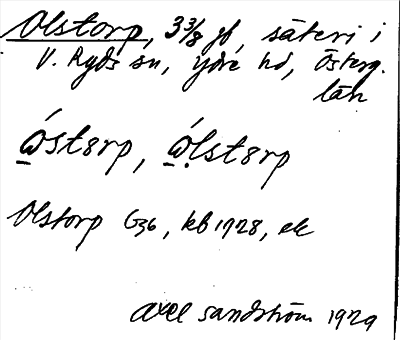 Olstorp, 3 3/8 gf, säteri i
V. Ryds sn, Ydre hd, Österg.
län
ώst8rp, ώ̣lst8rp
Olstorp G36, kb 1928, ek
Axel Sandström 1929